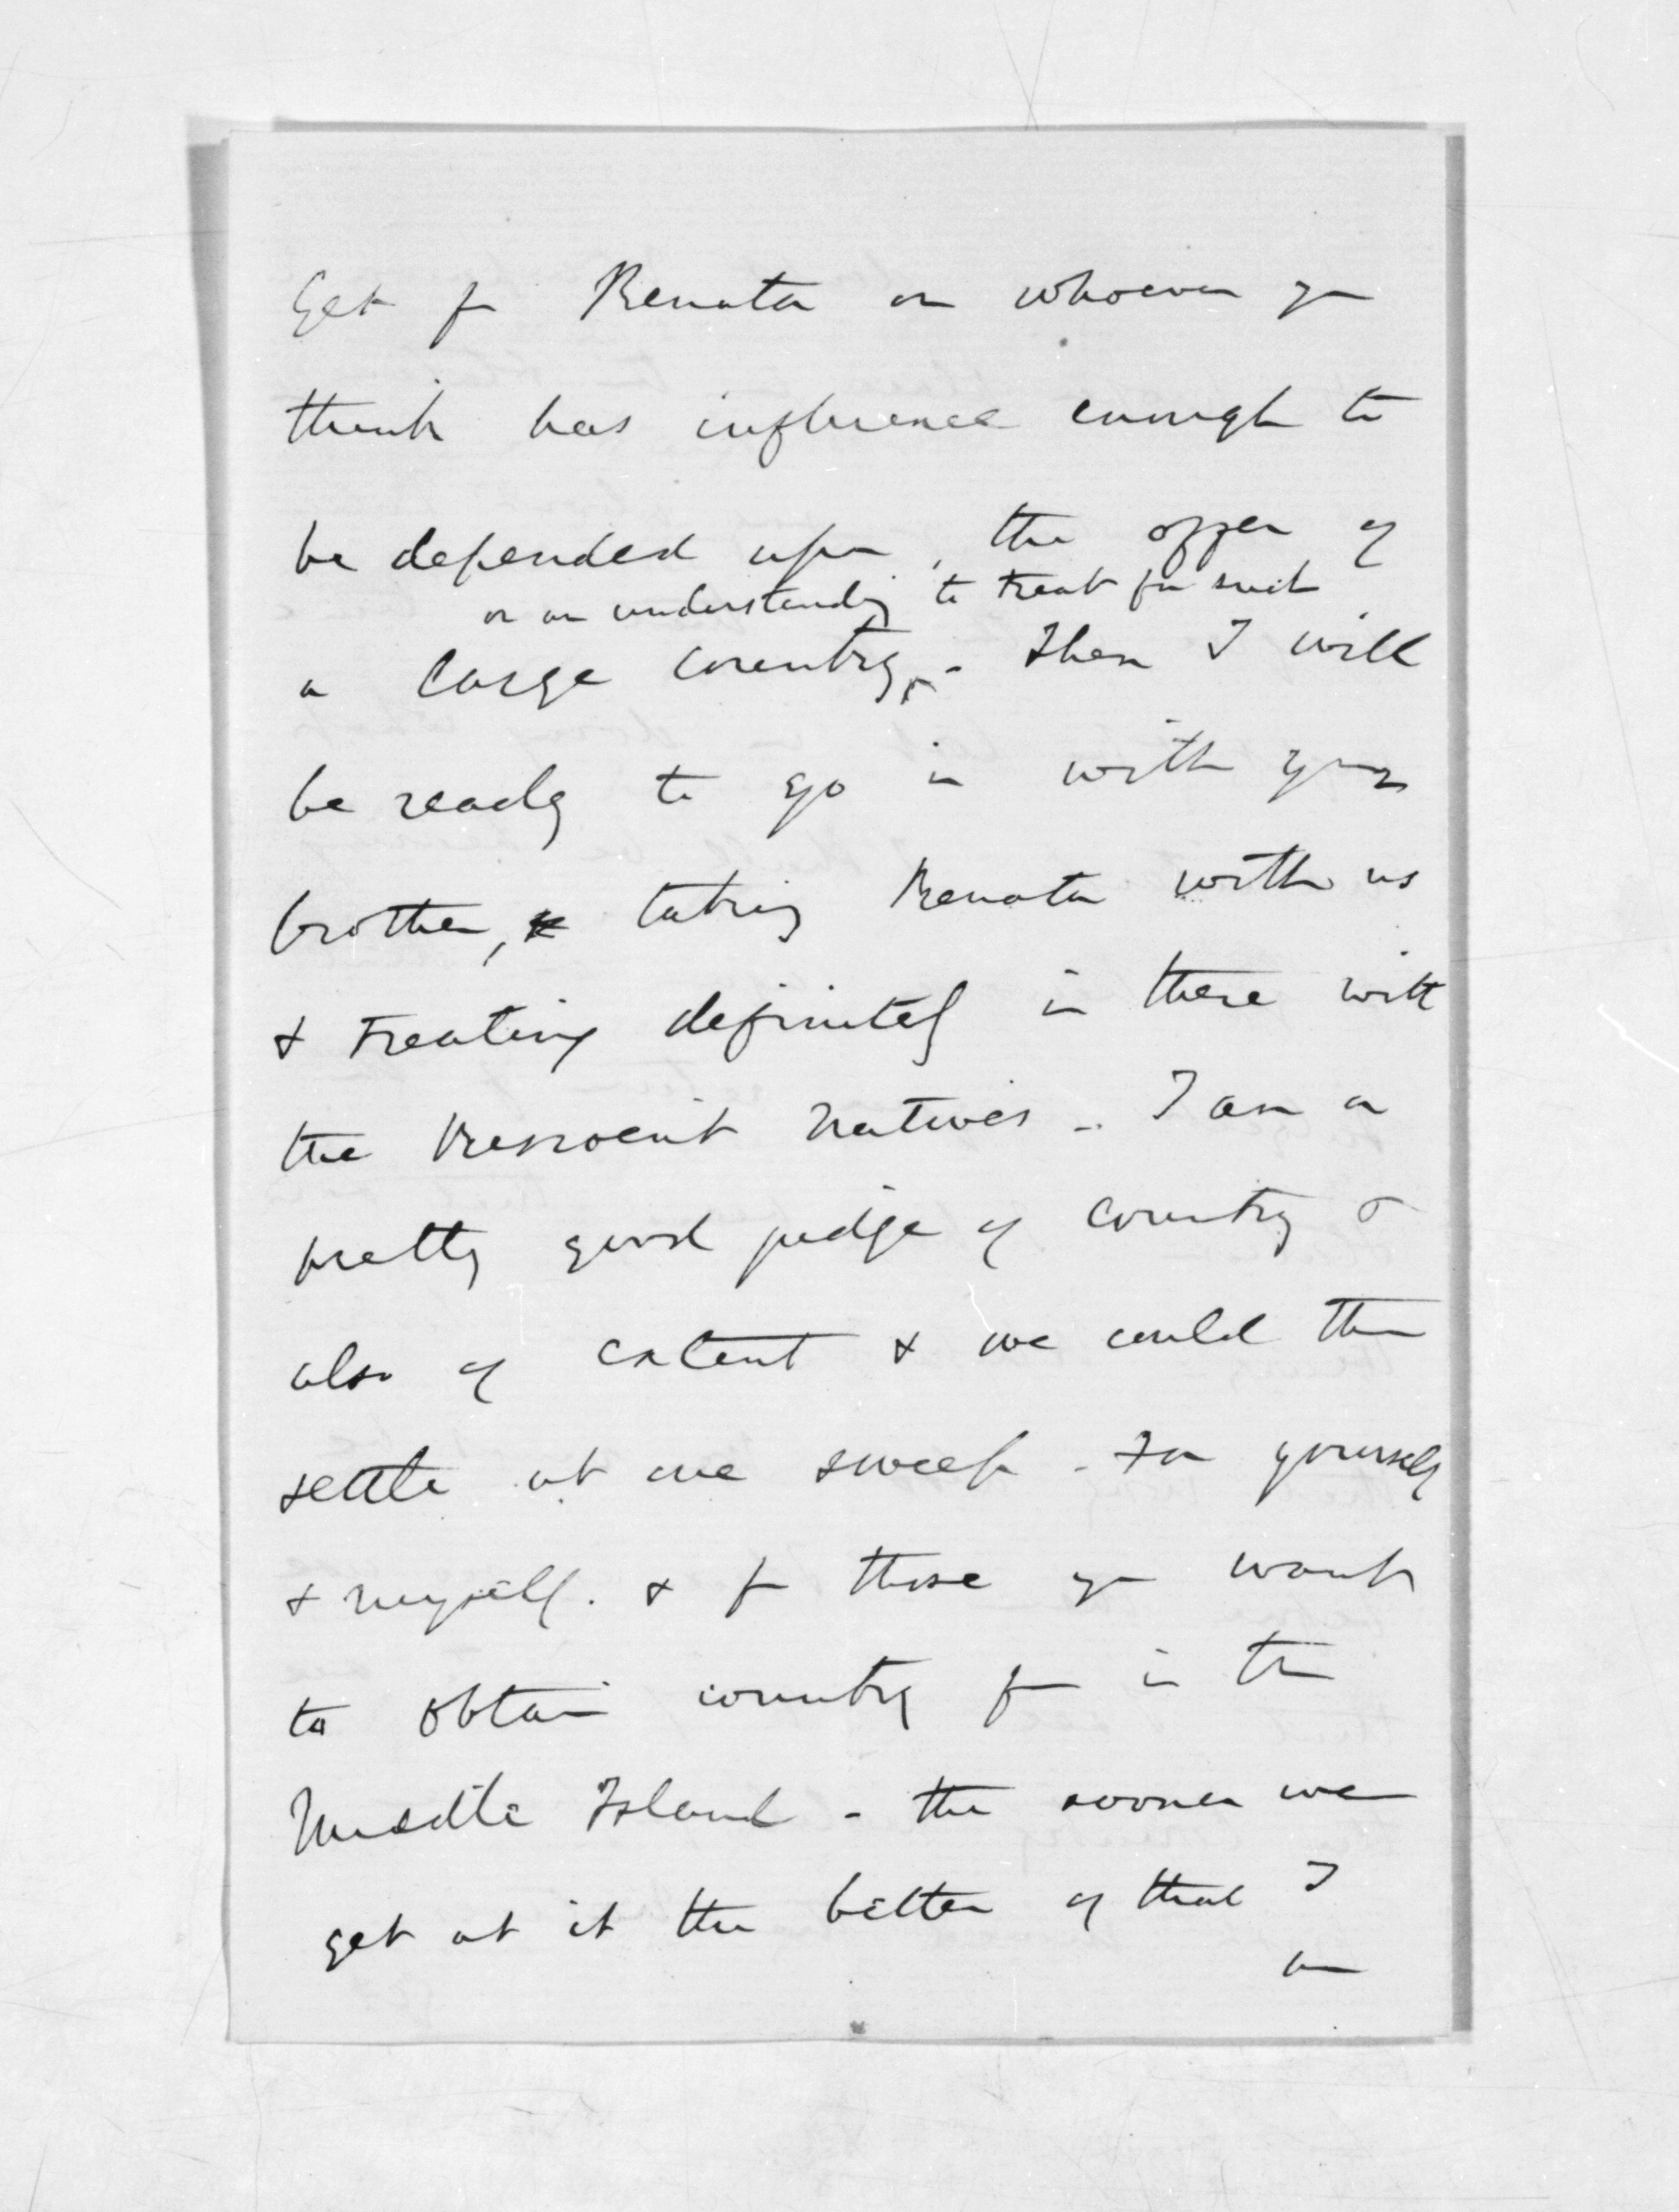 Get fr Renata or whoever you
think has influence enough to
be depended upon, the offer of
or an understanding to treat for such
a large country - Then I will
be ready to go in with your
brother, taking Renata with us
& treating definitely in there with
the natives - I am a
pretty good judge of country &
also of extent & we could then
settle at one sweep - For yourself
& myself. & for those you want
to obtain country for in the
Middle Island - the sooner we
get at it the better of that I
am